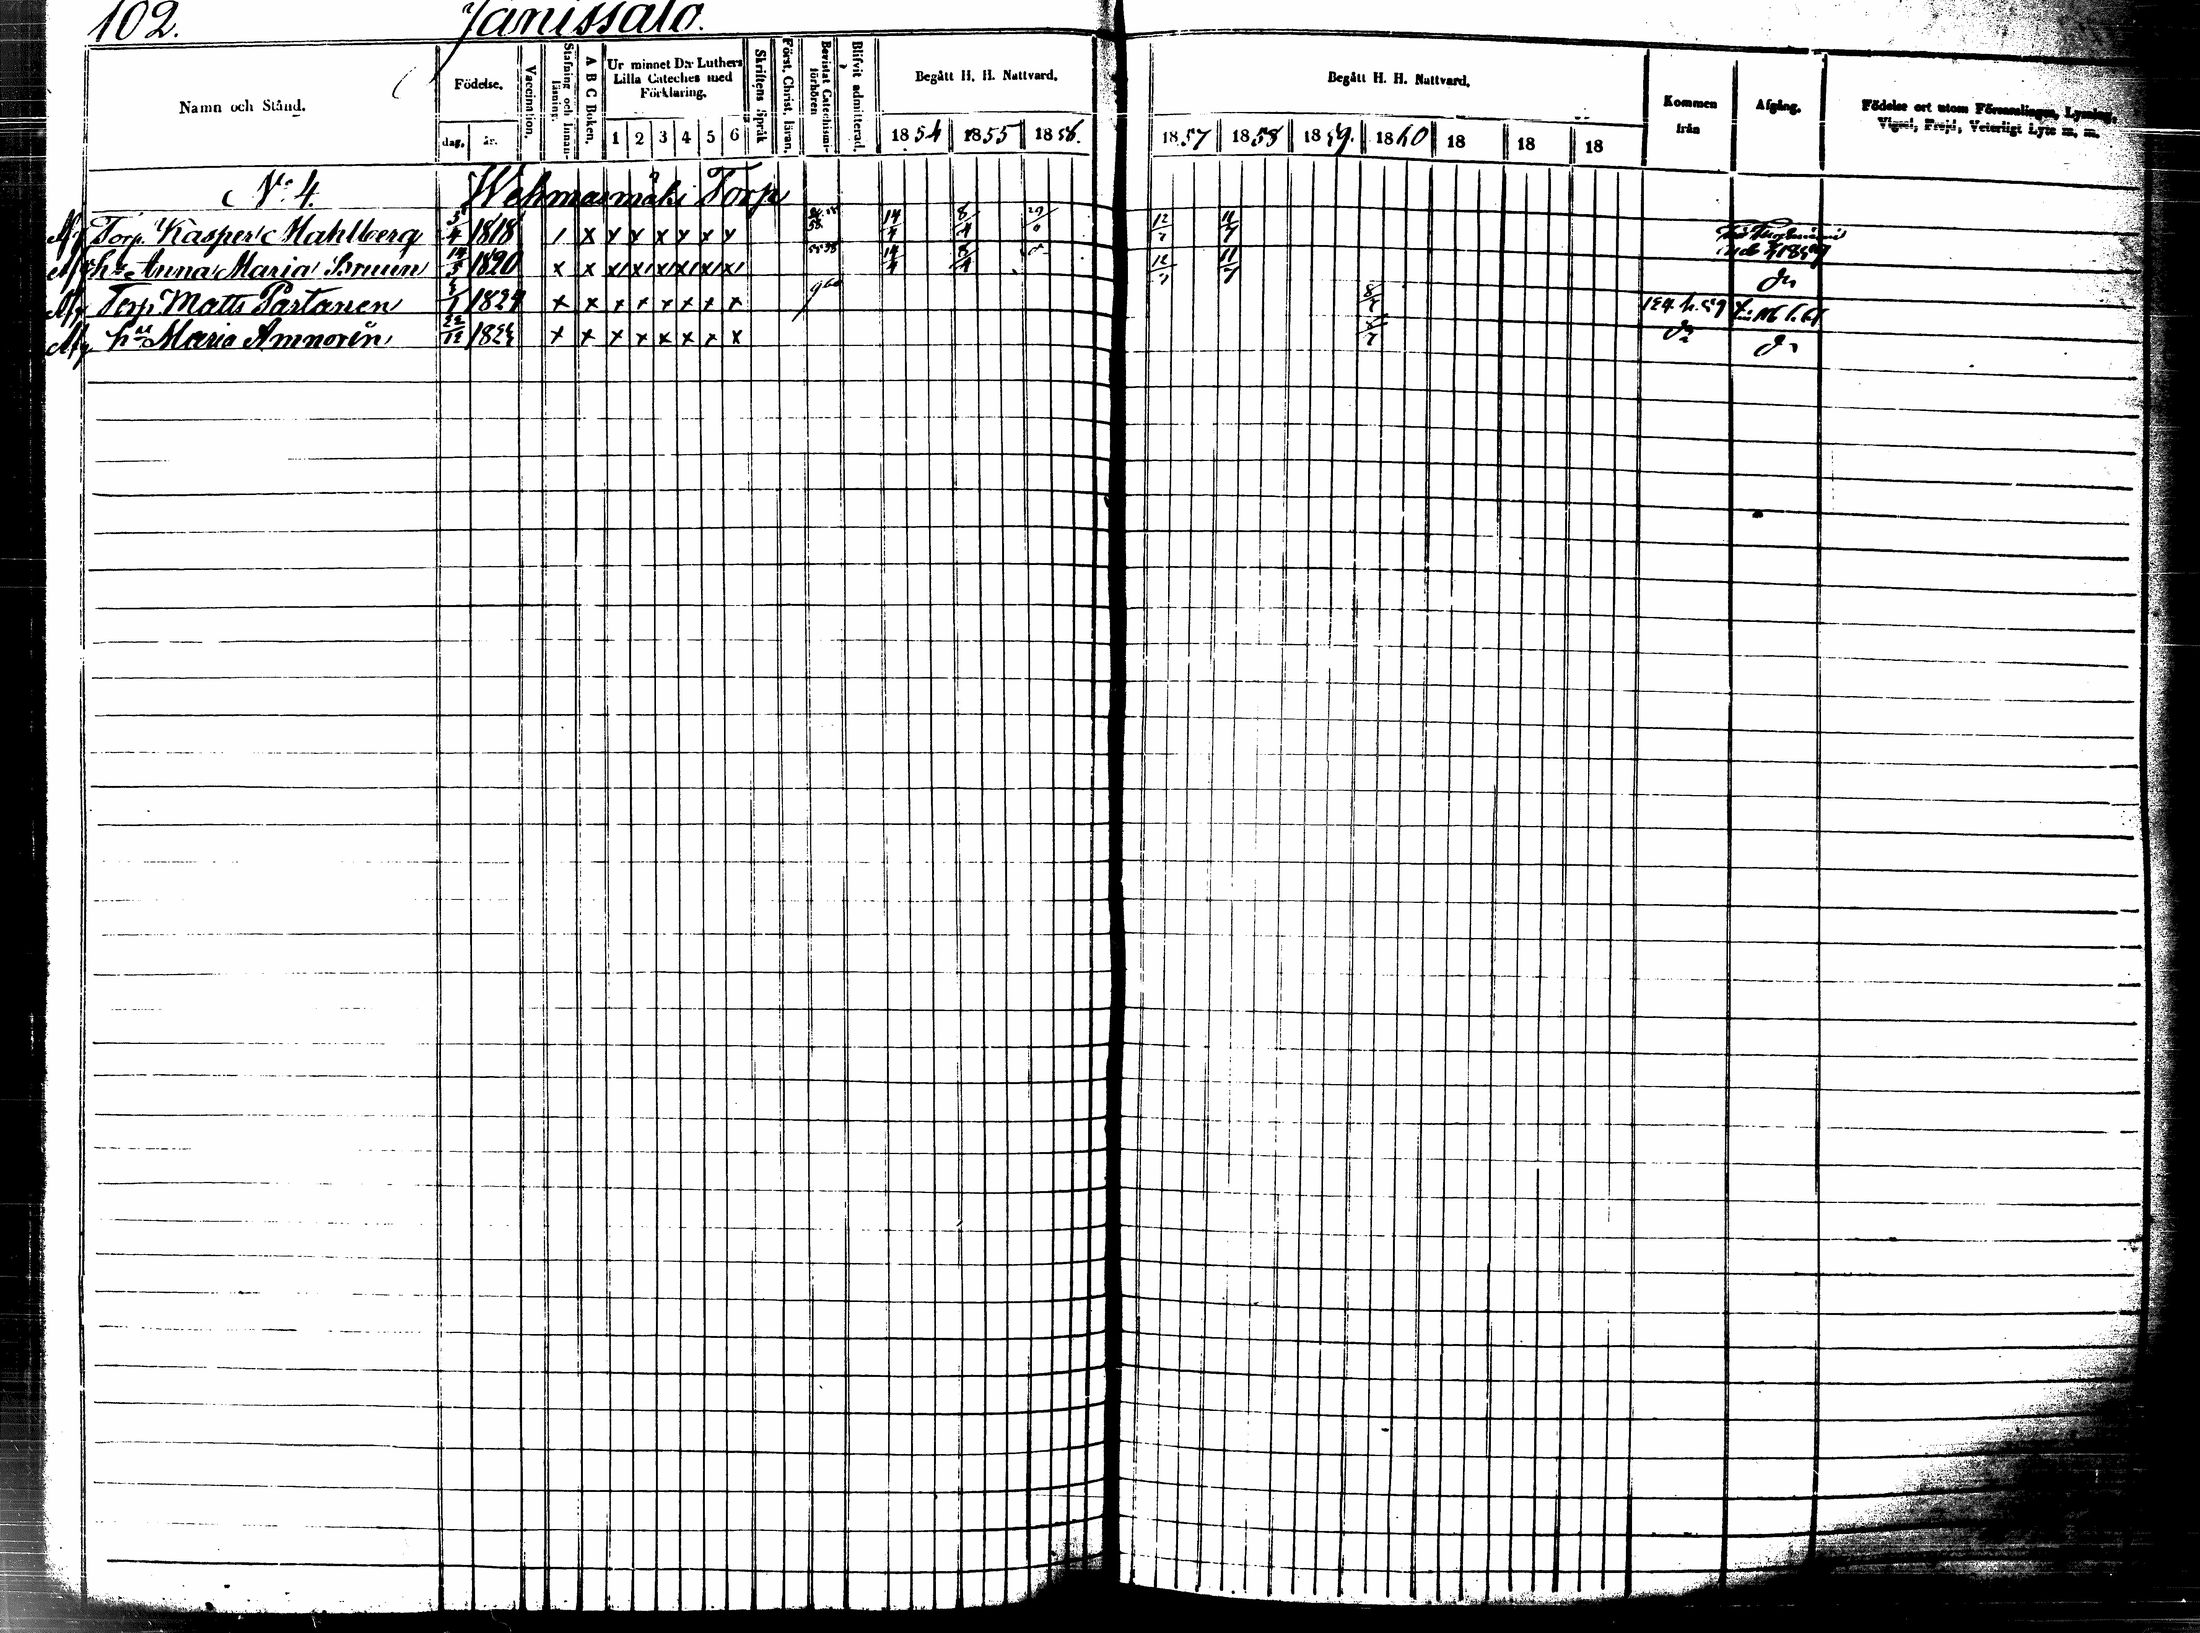 102. Jänissalo.
Namn och Stånd.
Födelse.
dag. år.
Vaccination.
Stafning och Innan-läsning.
A B C Boken.
Ur minnet D:r Luthers Lilla Cateches med Förklaring.
1 2 3 4 5 6
Skriftens Språk
Först. Christ. läran.
Bevistat Catechismi-förhören
Blifvit admitterad.
Begått H. H. Nattvard.
1854 1855 1856.
Begått H. H. Nattvard.
1857 1858 1859. 1860 18 18 18
Kommen från
Afgång.
Födelse ort utom Församlingen, Lysning, Vigsel, Frejd, Veterligt Lyte m. m.
No 4. Wehmasmäki Torp
Torp. Kasper Mahlberg 3/4 1818 / x x x x x x x 14/4 8/4 12/7 11/7
h:u Anna Maria Bruun 14/3 1820 x x x x x x x x 55 58 14/4 8/4 12/7 11/7 Do
Torp. Matts Partanen 1824 x x x x x x x x 8/7 124. h. 59
h:u Maria Ammorin 22/12 x x x x x x x x 8/7 Do Do